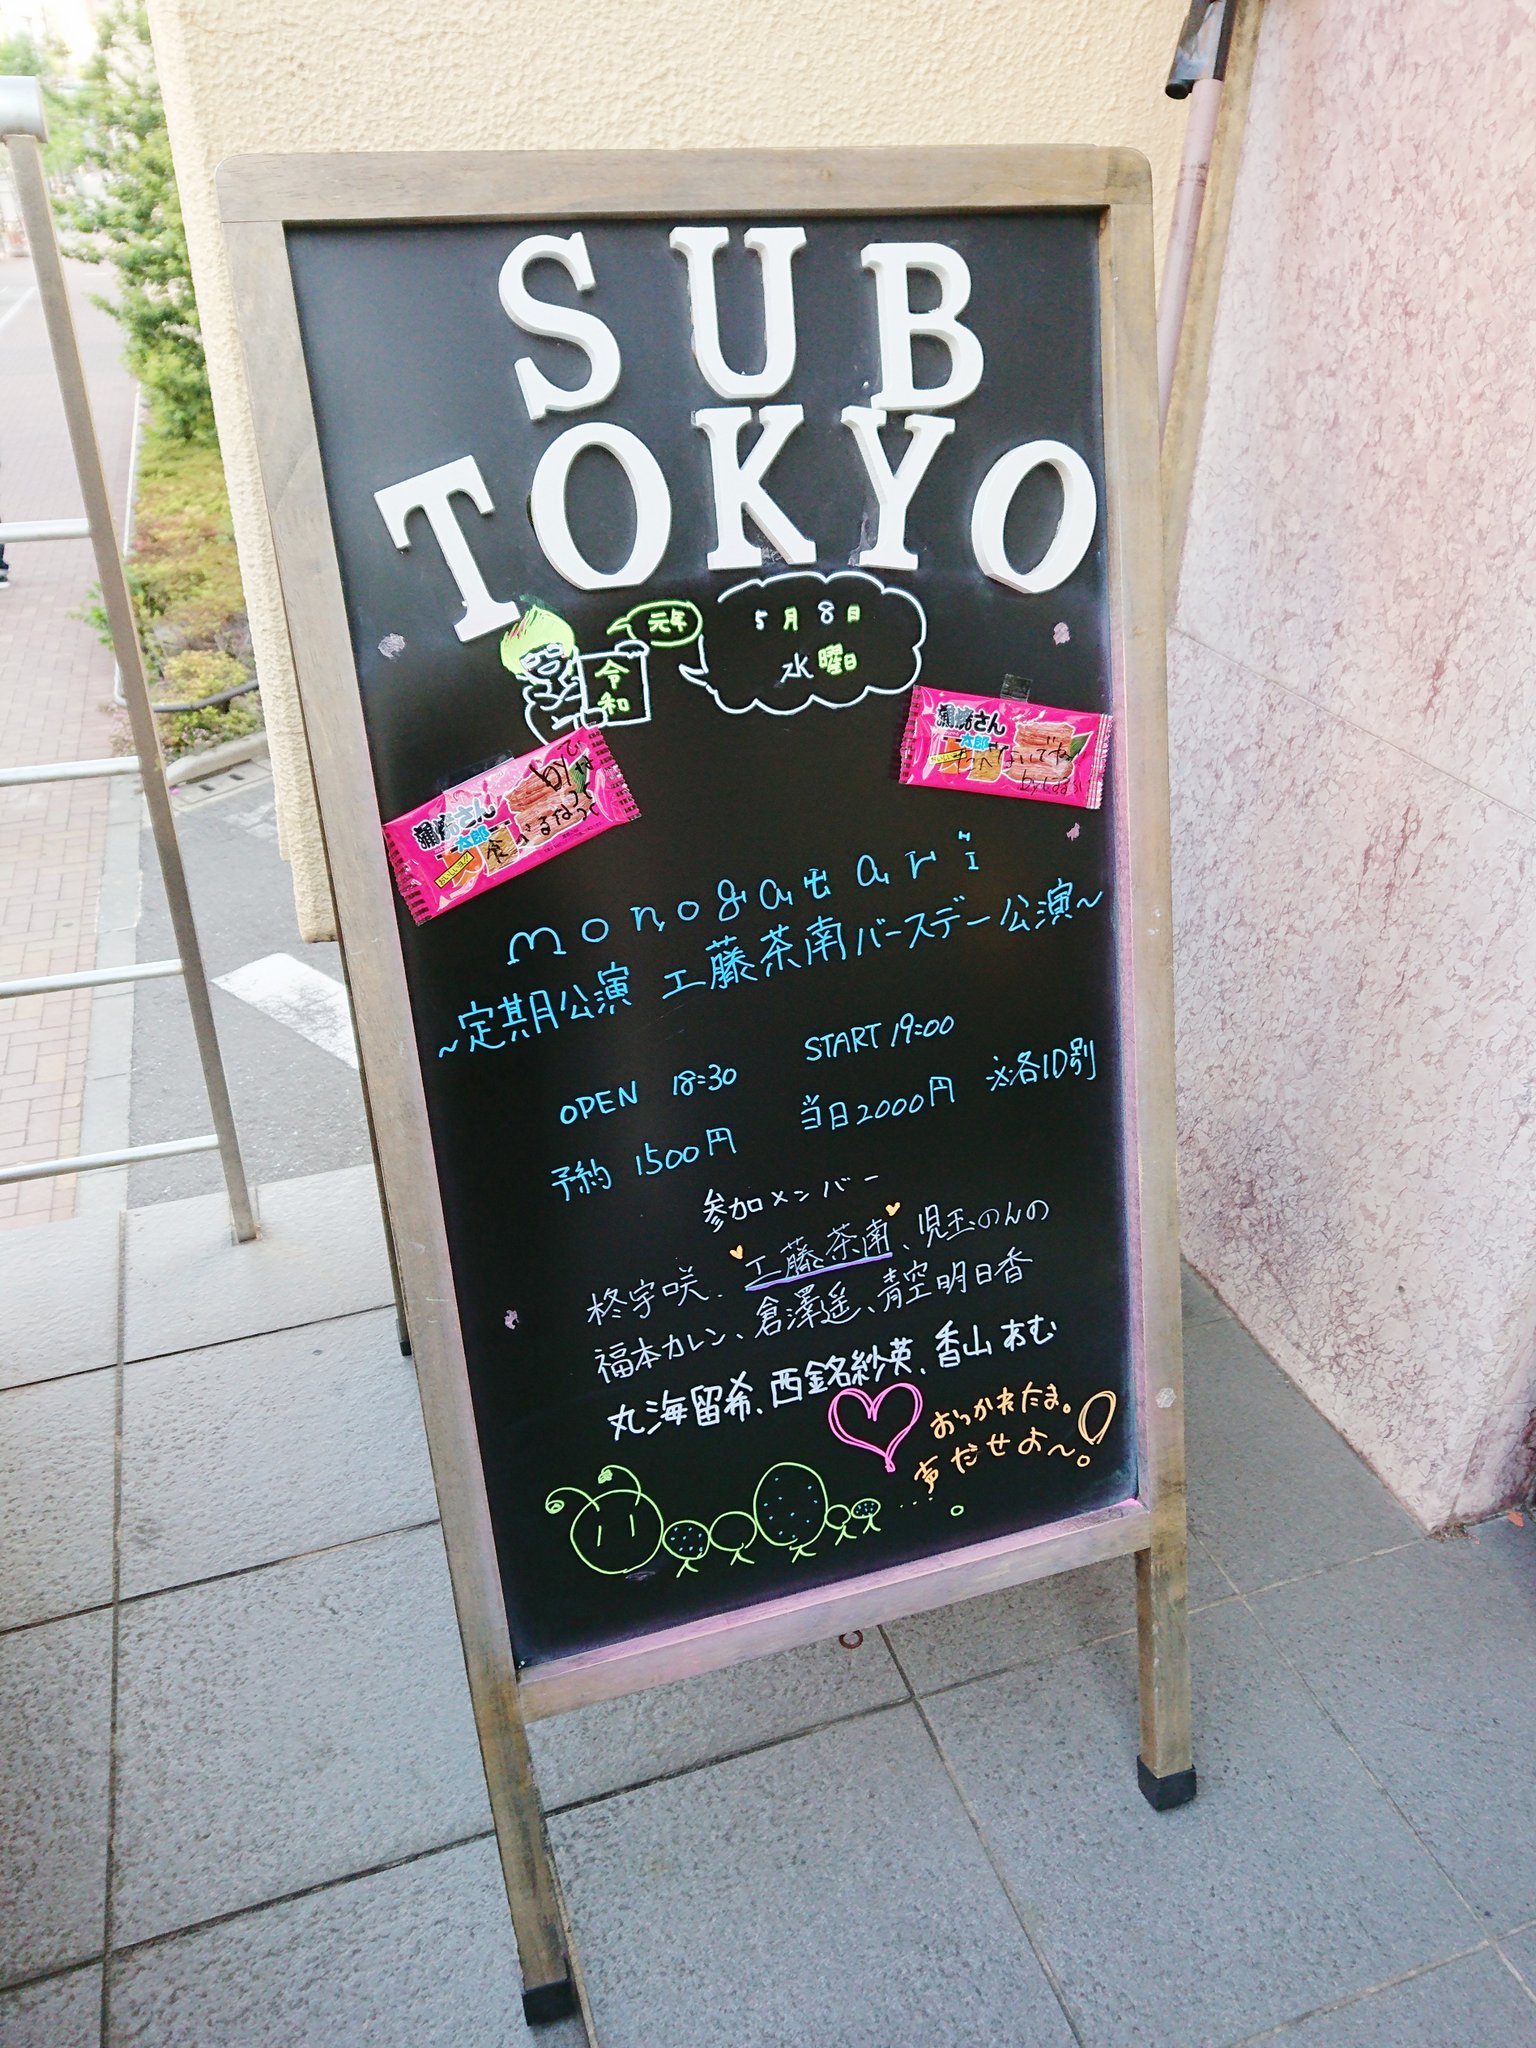 SUB
TOKYO
元年
令和
5月8日
水曜日
蒲焼さん
太郎
蒲焼さん
太郎
食べるなって
たべないでね
monogatari
~定期公演 工藤茶南バースデー公演~
OPEN 18:30 START 19:00
予約 1500円 当日2000円 ※各1D別
参加メンバー
柊宇咲、工藤茶南、児玉のんの
福本カレン、倉澤遥、青空明日香
丸海留希、西銘紗英、香山あむ
おつかれたま。
声だせよ~!